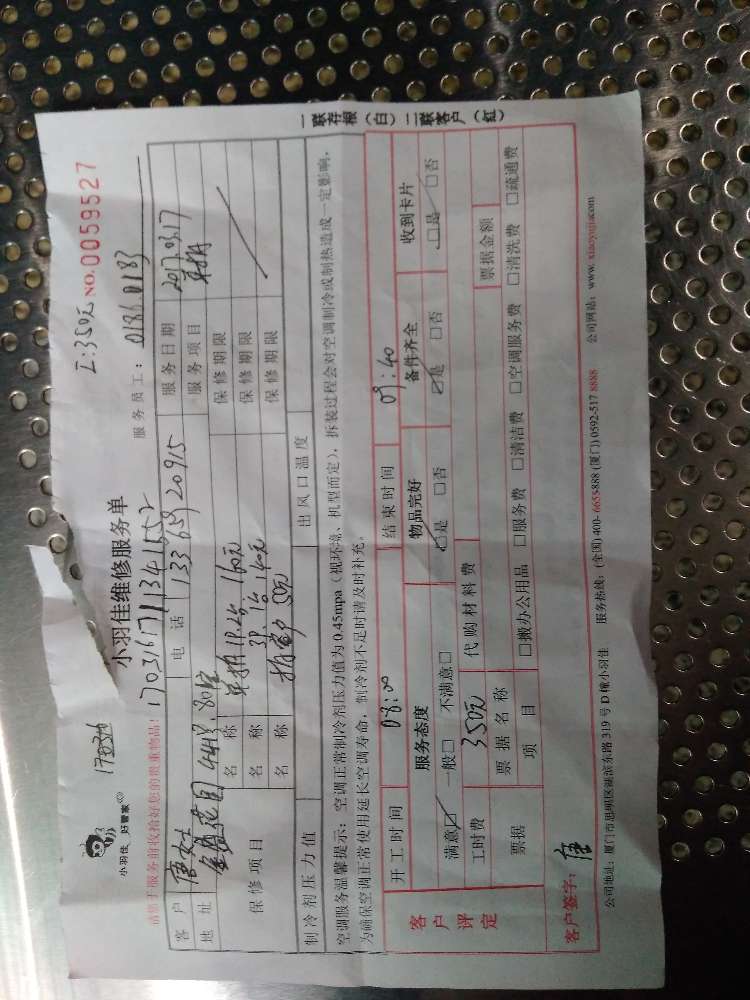 工:350元 NO.0059527
小羽佳 好管家
小羽佳维修服务单
服务员工: 0186.0183
请您于服务前收拾好您的贵重物品!
170316171134
客户 唐女士 电话 13365920915 服务日期 2017.03.17
地址 服务项目 单拆
保修项目
名称 单拆1P.2台.160元 保修期限
名称 3P.1台.140元 保修期限
名称 50元 保修期限
制冷剂压力值 出风口温度
空调服务温馨提示:空调正常制冷剂压力值为 0.45mpa(视环境、机型而定),拆装过程会对空调制冷或制热造成一定影响,
为确保空调正常使用延长空调寿命,制冷剂不足时请及时补充。
一联存根(白)二联客户(红)
客户评定
开工时间 08:00 结束时间 09:40
服务态度 物品完好 备件齐全 收到卡片
满意☑ 一般□ 不满意□ ☑是 □否 ☑是 □否 ☑是 □否
工时费 350元 代购材料费
票据 票据名称 票据金额
项目 □搬办公用品 □服务费 □清洁费 □空调服务费 □清洗费 □疏通费
客户签字: 唐
公司地址:厦门市思明区湖滨东路 319 号 D 幢小羽佳 服务热线:(全国)400-6655-888 (厦门)0592-517 8888 公司网站:www.xiaoyujia.com